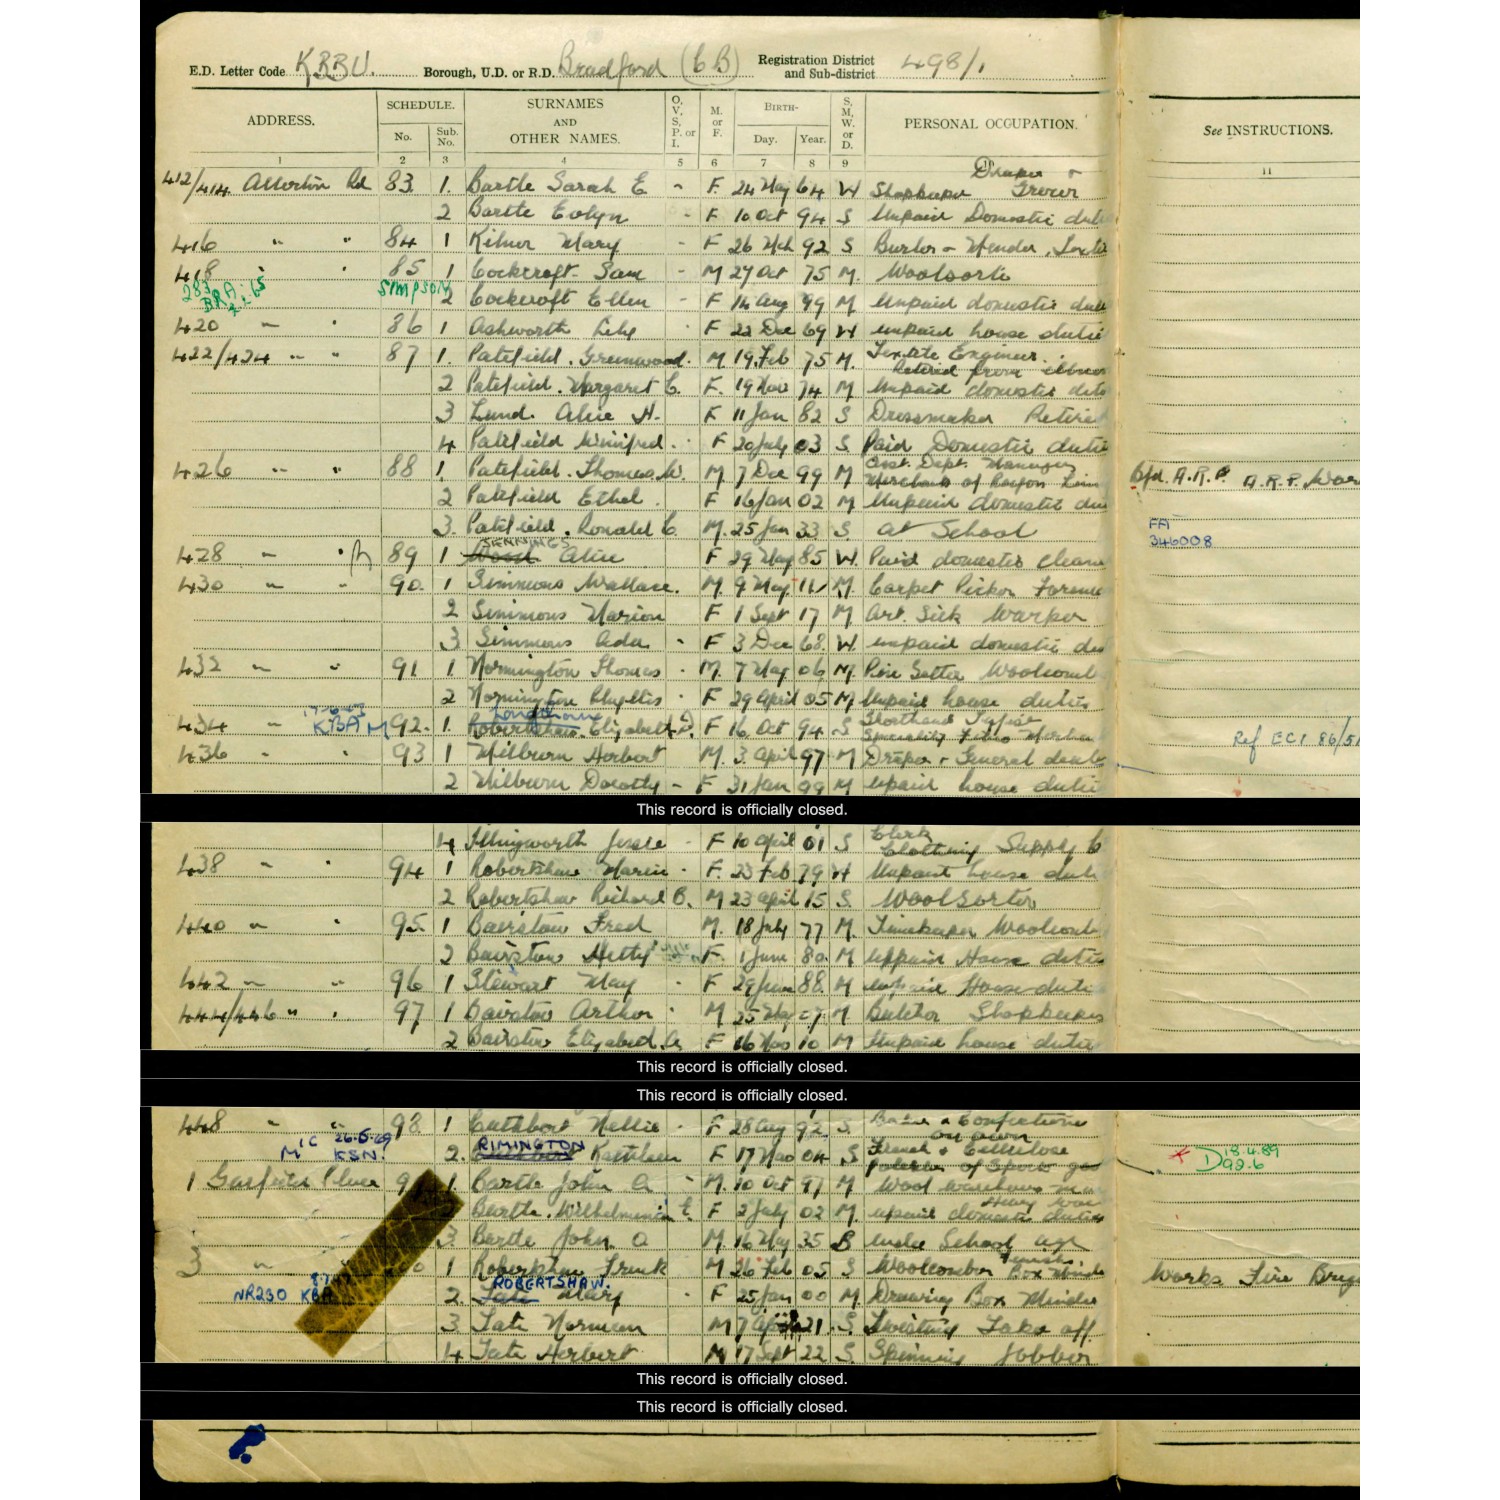 E.D. Letter Code KRBU. Borough, U.D. or R.D. Bradford (CB) Registration District and Sub-district 498/1
ADDRESS. SCHEDULE. No. Sub. No. SURNAMES AND OTHER NAMES. O, V, S, P, or I. M. or F. BIRTH- Day. Year. S, M, W, or D. PERSONAL OCCUPATION. See INSTRUCTIONS.
1 2 3 4 5 6 7 8 9 10 11
412/414 Allerton Rd 83 1. Bartle Sarah E - F. 24 May 64 W Shopkeeper Draper + Grocer
2 Bartle Evelyn - F 10 Oct 94 S Unpaid Domestic duti
416 " " 84 1 Kilner Mary - F 26 Mch 92 S Burler + Mender,
418 " " 85 1 Cockcroft Sam - M 27 Oct 75 M. Woolsorte
283 BRA SIMPSON 2 Cockcroft Ellen - F 14 Aug 99 M Unpaid domestic duti
420 " " 86 1 Ashworth Lily F 22 Dec 69 W unpaid house dutie
422/424 " " 87 1. Patefield. Greenwood. M. 19. Feb 75 M. Textile Engineer. Retired from illness
2 Patefield. Margaret C. F. 19 Nov 74 M Unpaid domestic duti
3 Lund. Alice H. F 11 Jan 82 S Dressmaker Retired
4 Patefield Winifred. F 20 July 03 S. Paid Domestic dutie
426 " " 88 1. Patefield. Thomas. W. M. 7 Dec 99 M Dept. Manager Bfd. A.R.P. A.R.P. War
2 Patefield Ethel. F 16 Jan 02 M Unpaid domestic du
3. Patefield. Ronald C. M. 25 Jan 33 S. at School FA 346008
428 " 89 1 JENNINGS Alice F 29 May 85 W. Paid domestic cleane
430 " " 90. 1 Simmons Wallace. M. 9 May 11 M. Carpet Picker Forema
2 Simmons Marion F 1 Sept 17 M Art. Silk Warper
3 Simmons Ada - F 3 Dec 68. W. unpaid domestic du
432 " " 91 1. Normington Thomas - M. 7 May 06 M. Woolcomb
2 Normington Phyllis - F 29 April 05 M Unpaid house duties
434 " KBA M 92. 1. Robertshaw. Elizabeth F 16 Oct 94 S Shorthand Typist Ref EC1 86/51
436 " " 93 1 Milburn Herbert M. 3. April 97 M Draper + General deale
2 Milburn Dorothy - F 31 Jan 99 M Unpaid house dutie
This record is officially closed.
4 Illingworth Jessie - F 10 April 01 S Clerk Clothing Supply C
438 " " 94 1 Robertshaw - F. 23 Feb 79 W Unpaid house duti
2 Robertshaw Richard B. M 23 April 15 S. Woolsorter
440 " " 95. 1 Bairstow Fred M. 18 July 77 M. Timekeeper Woolcomb
2 Bairstow Hetty F. 1 June 80 M unpaid House dutie
442 " " 96 1 Stewart May - F 29 June 88. M unpaid House dutie
444/446 " " 97 1 Bairstow Arthur - M 25 May 07 M Butcher Shopkeeper
2 Bairstow Elizabeth A F 16 Nov 10 M Unpaid house dutie
This record is officially closed.
This record is officially closed.
448 " " 98. 1. Cuthbert Nellie - F 28 Aug 92 S. Baker + Confectioner on own
M 1C 26.5.69 KSN. 2. RIMINGTON Kathleen F 17 Nov 04 S French + Cellulose polisher of Sports goo * D 18.4.89 92.6
1 Garfield Place 9 1. Bartle John A - M. 10 Oct 97 M Wool warehouse man Heavy wor
Bartle. Wilhelmina E. F 2 July 02 M. unpaid domestic duties
3. Bartle John. A M. 16 May 35 S under School age
3 " 1 Robertshaw Frank M 26 Feb 05 S Woolcomber Box Minde Works Fire Brig
NR230 KBA 2. ROBERTSHAW. Mary - F 25 Jan 00 M. Drawing Box Minder
3. Tate Norman M 7 April 21. S. Twisting Take off
4 Tate Herbert M 17 Sept 22 S. Spinning Jobber
This record is officially closed.
This record is officially closed.